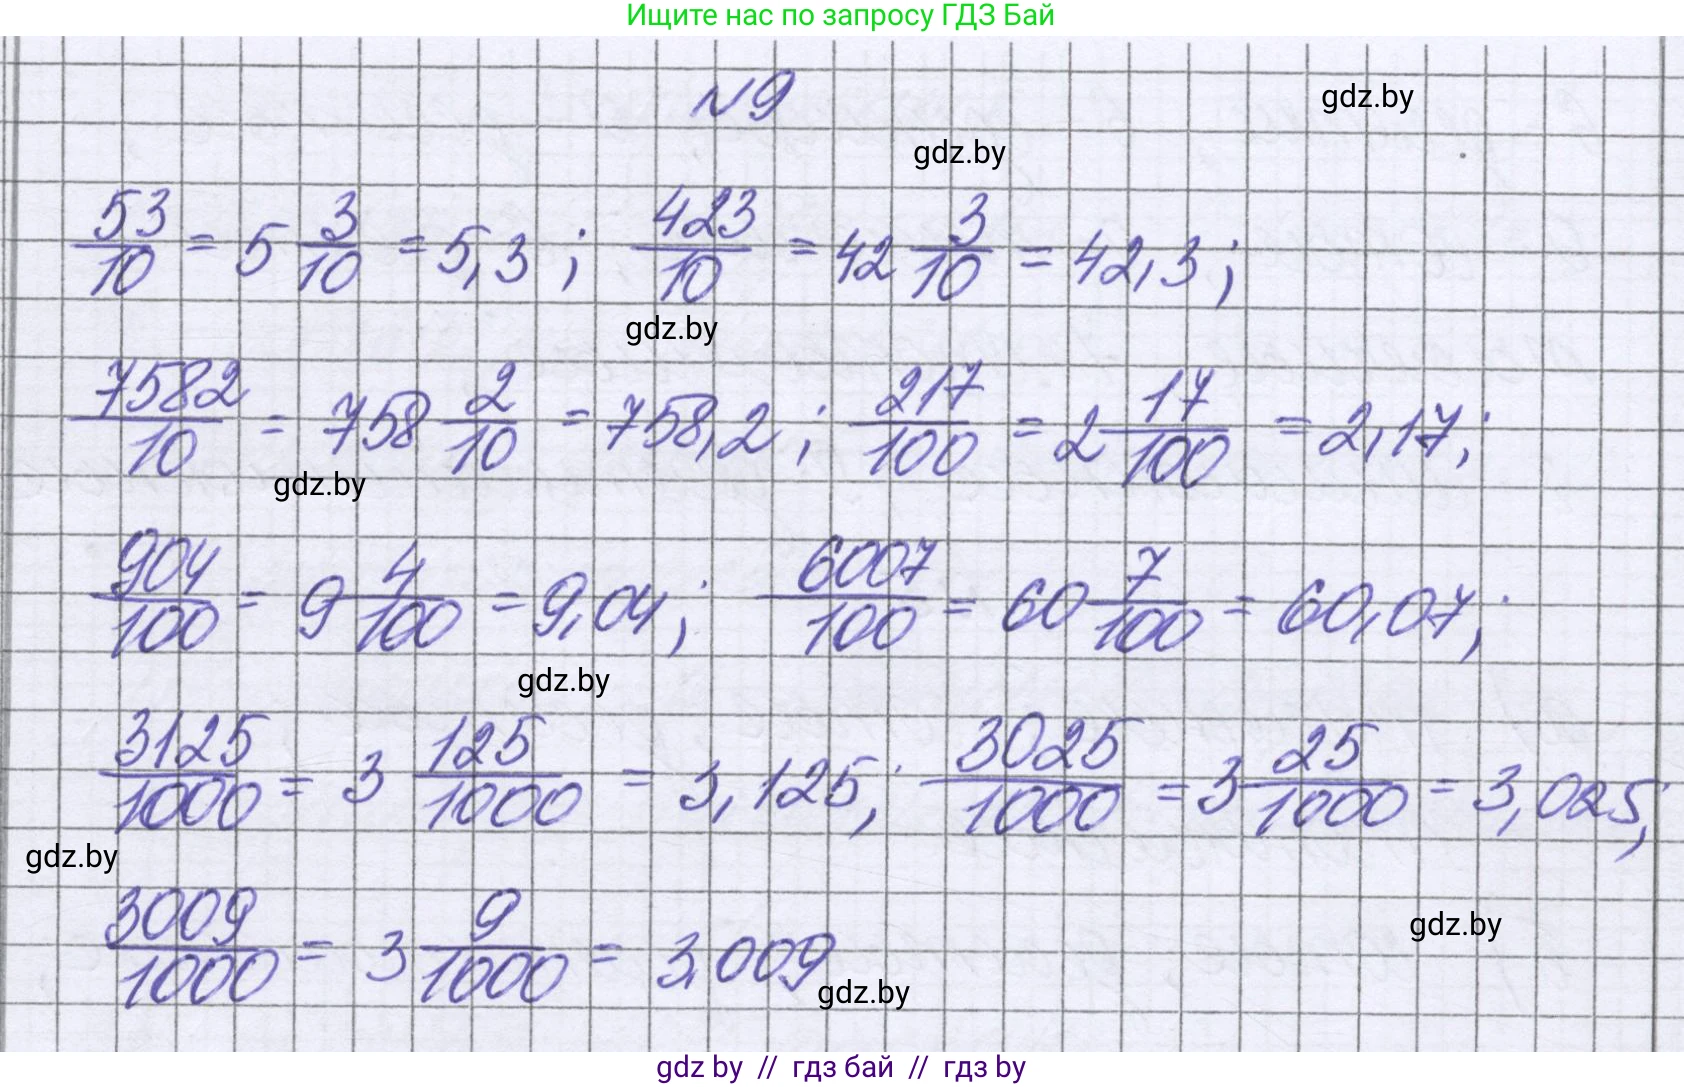 Ищите нас по запросу ГДЗ Бай
№9
gdz.by
gdz.by
53/10 = 5 3/10 = 5,3 ; 423/10 = 42 3/10 = 42,3 ;
gdz.by
7582/10 = 758 2/10 = 758,2 ; 217/100 = 2 17/100 = 2,17;
gdz.by
904/100 = 9 4/100 = 9,04; 6007/100 = 60 7/100 = 60,07;
gdz.by
3125/1000 = 3 125/1000 = 3,125; 3025/1000 = 3 25/1000 = 3,025;
gdz.by
3009/1000 = 3 9/1000 = 3,009
gdz.by
gdz.by
gdz by // гдз бай // гдз by